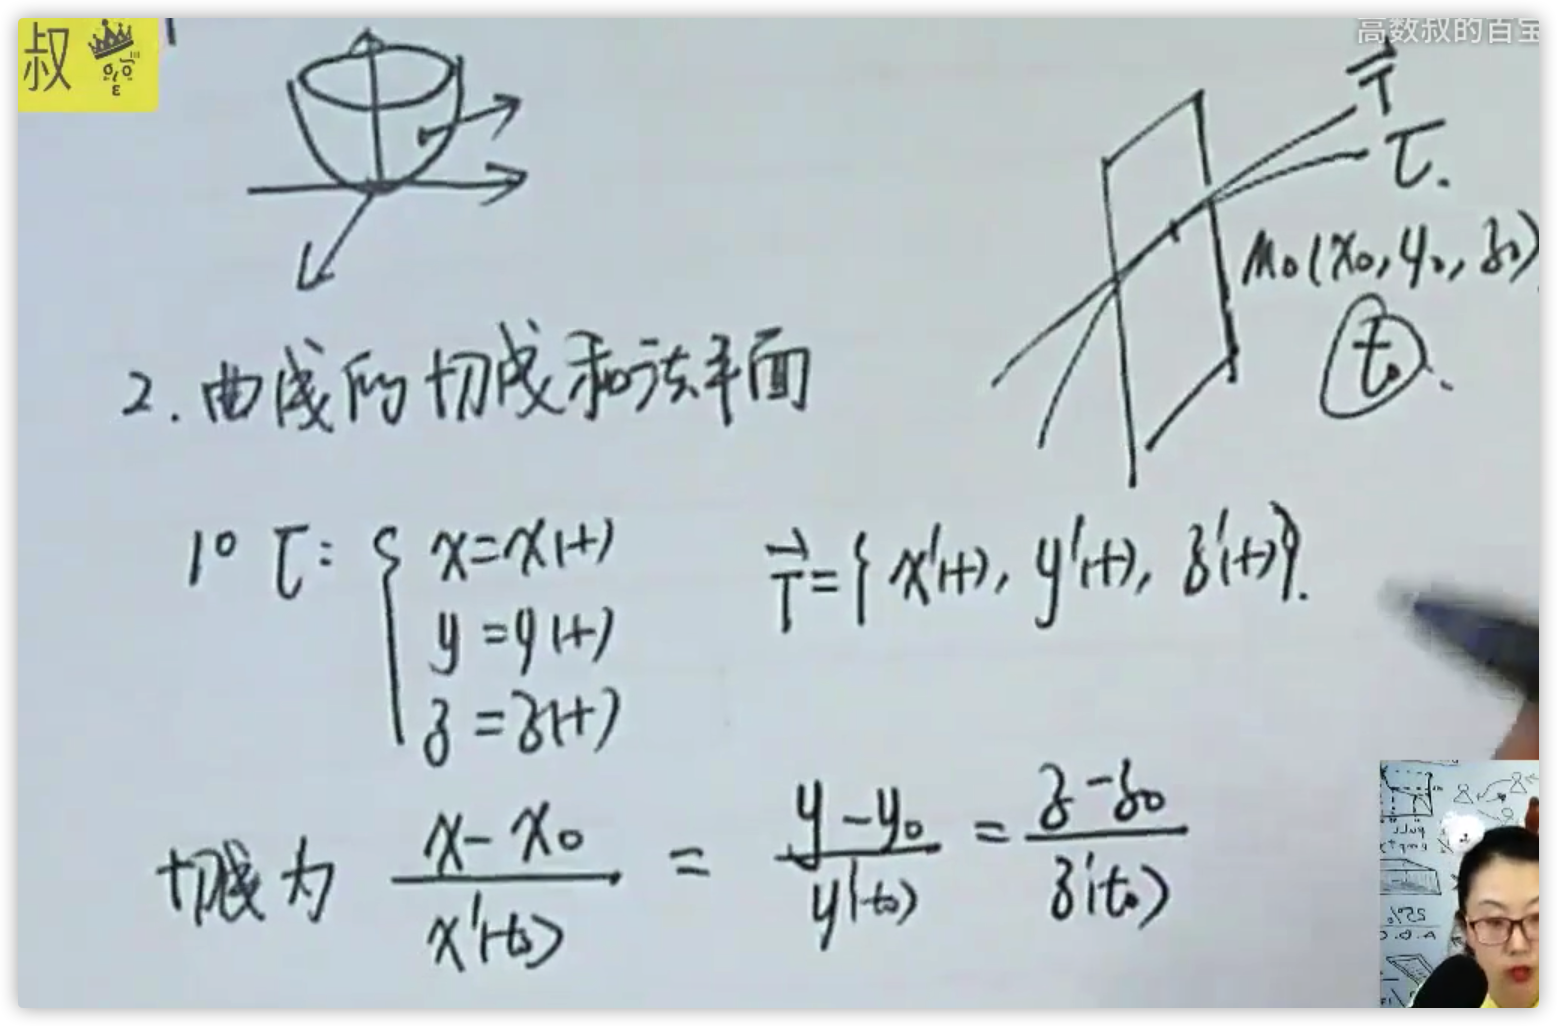 叔
高数叔的百宝
T⃗
τ.
M₀(x₀, y₀, z₀)
t₀
2. 曲线的切线和法平面
1° τ: { x=x(t)
y=y(t)
z=z(t)
T⃗={x'(t), y'(t), z'(t)}.
切线为 (x-x₀)/x'(t₀) = (y-y₀)/y'(t₀) = (z-z₀)/z'(t₀)